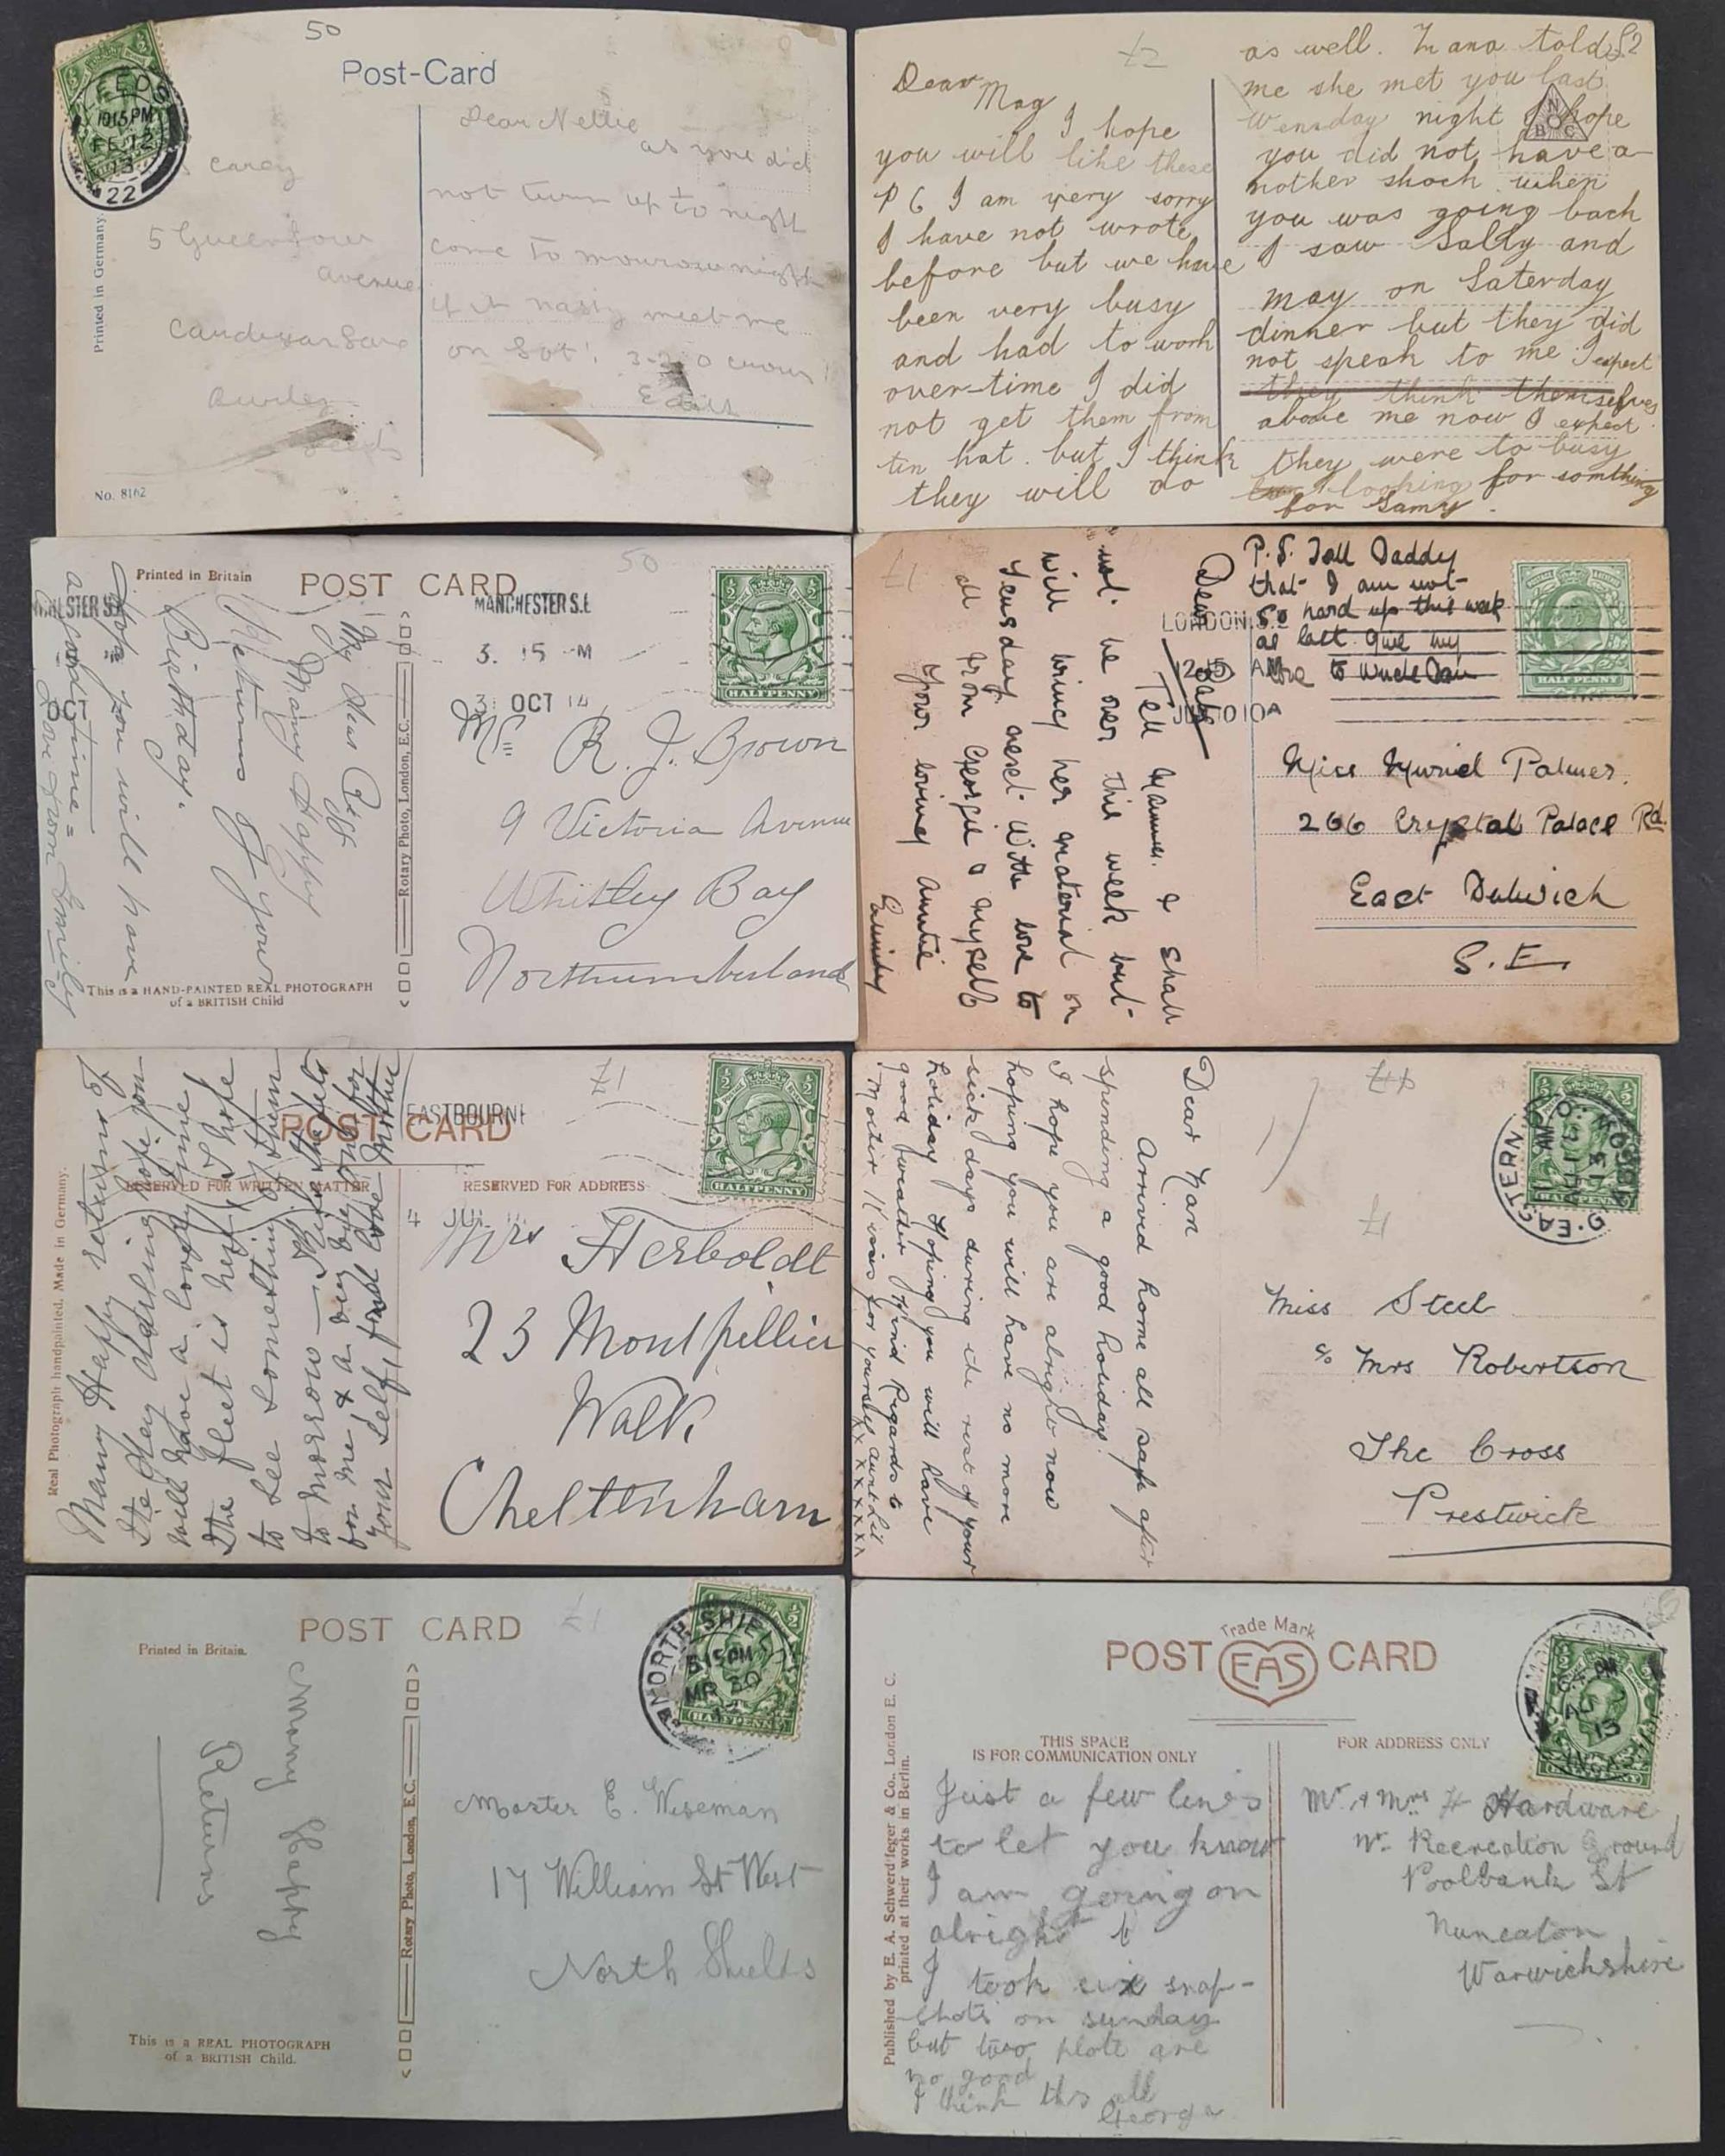 50
Post-Card
LEEDS
10.15 PM
FE 12
13
22
Printed in Germany.
Carey
5
avenue
No. 8162
Dear Nellie
as you did
not turn up to night
come to mourow night
if it nasty meet me
on Sat. 3-20
Edith
£2
Dear Mag
I hope
you will like these
P C I am very sorry
I have not wrote
before but we have
been very busy
and had to work
over-time I did
not get them from
tin hat. but I think
they will do
£2
as well. told
me she met you last
Wensday night I hope
you did not have a-
nother shock when
you was going back
I saw Sally and
may on Saterday
dinner but they did
not speak to me I expect
they think themselves
above me now I expect
they were to busy
looking for somthing
for Samy.
N
B C
Printed in Britain
POST CARD
50
MANCHESTER S.E
3. 15 M
3 OCT 14
HALFPENNY
My dear
Many Happy
Returns of your
Birthday.
Hope you will have
a good time =
Love from Emily
Rotary Photo, London, E.C.
This is a HAND-PAINTED REAL PHOTOGRAPH
of a BRITISH Child
R. J. Brown
9 Victoria Avenue
Whitley Bay
Northumberland
£1
P.S. Tell Daddy
that I am not
so hard up this week
as last. Give my
love to Uncle Dan
LONDON. S.E
12.15 AM
JU 10 10 A
HALF PENNY
Dear Baby
Tell Mamma. I shall
not be over this week but
will bring her material on
Teusday next. With love to
all from Georgie & myself
Your loving Auntie
Miss Muriel Palmer.
266 Crystal Palace Rd.
East Dulwich
S.E.
£1
POST CARD
EASTBOURNE
4 JUL
HALFPENNY
RESERVED FOR WRITTEN MATTER
RESERVED FOR ADDRESS
Real Photograph handpainted. Made in Germany.
Many Happy returns of
the day darling hope you
will have a lovely time
the fleet is here, I hope
to see something of them
to morrow
for me & a big one for
your self fond love Mother
Mrs Herboldt
23 Montpellier
Walk
Cheltenham
EASTERN
HALFPENNY
£1
Dear Nan
Arrived home all safe after
spending a good holiday.
I hope you are alright now
hoping you will have no more
sick days during the rest of your
holiday Hoping you will have
good weather Kind Regards to
Mother Kisses for yourself Aunt Lil
Miss Steel
c/o Mrs Robertson
The Cross
Prestwick
POST CARD
£1
Printed in Britain.
NORTH SHIELDS
8.15 PM
MR 30
HALFPENNY
Many Happy
Returns
Rotary Photo, London, E.C.
This is a REAL PHOTOGRAPH
of a BRITISH Child.
Master E. Wiseman
17 William St West
North Shields
Trade Mark
POST EAS CARD
THIS SPACE
IS FOR COMMUNICATION ONLY
FOR ADDRESS ONLY
Published by E. A. Schwerdtfeger & Co., London E. C.
printed at their works in Berlin.
Just a few lines
to let you know
I am going on
alright
I took six snap-
shots on sunday
but two plate are
no good
I think ths all
George
Mr. & Mrs H Hardware
Nr. Recreation Ground
Poolbank St
Nuneaton
Warwickshire